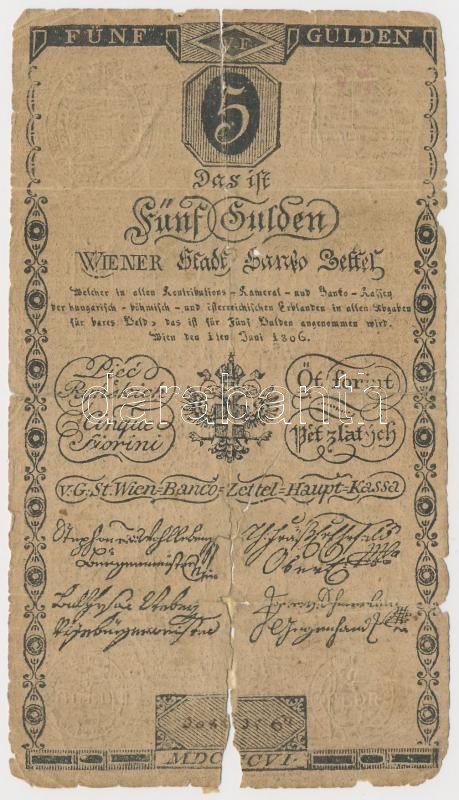 FÜNF V.F. GULDEN
5
Das ist
Fünf Gulden
WIENER Stadt Banko Zettel
Welcher in allen Kontributions-Kameral-und Banko-Kassen
der hungarisch-böhmisch-und österreichischen Erblanden in allen Abgaben
für bares Geld, das ist für Fünf Gulden angenommen wird.
Wien den 1ten Juni 1806.
Pięć
Ryńskich
Cinque
Fiorini
Öt forint
Pět zlatých
darabanth
v.G.St.Wien-Banco-Zettel-Haupt-Kassa
Burgermeister
Vizebürgermeister
MDCCCVI